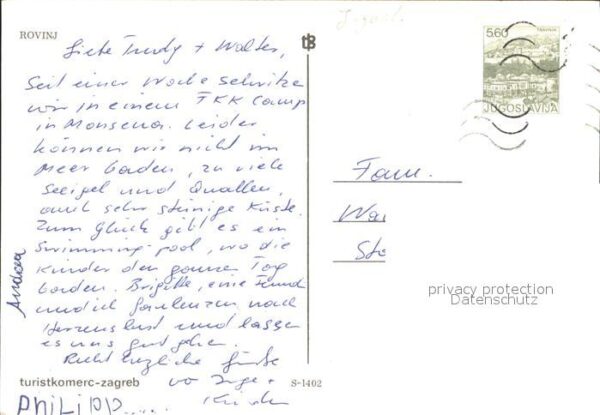 ROVINJ
Liebe Trudy + Walter,
Seit einer Woche schwitze
wir in einem FKK Camp
in Monsena. Leider
können wir nicht im
Meer baden, zu viele
Seeigel und Quallen,
auch sehr steinige Küste.
Zum Glück gibt es ein
Swimming-pool, wo die
Kinder den ganzen Tag
baden. Brigitte, eine Freundin
und ich faulenzen nach
Herzenslust und lassen
es uns gut gehen.
Recht herzliche Grüsse
von Inge +
Kinder
Andrea
Philipp.....
turistkomerc-zagreb
S-1402
tB
5.60
TRAVNIK
JUGOSLAVIJA
Fam.
Wal
Sto
privacy protection
Datenschutz